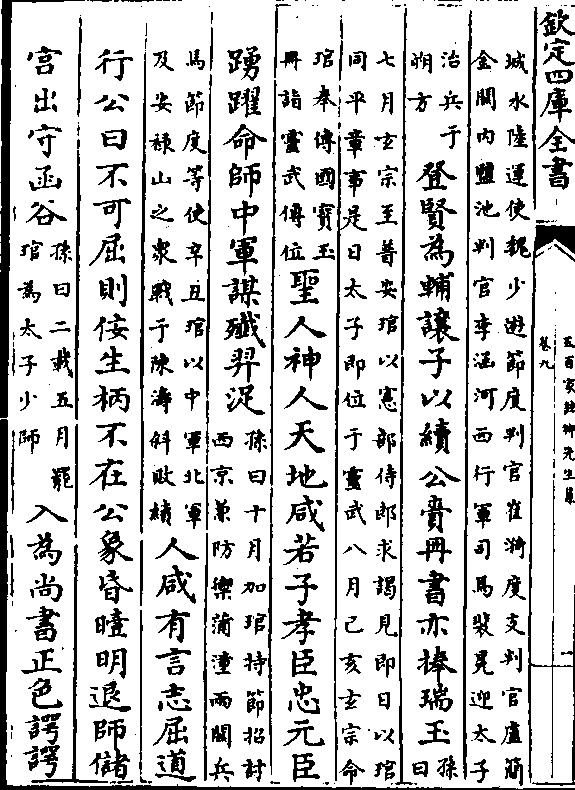 欽定四庫全書
五百家註柳先生集
卷九
城水陸運使魏少遊節度判官崔漪度支判官盧簡
金關內鹽池判官李涵河西行軍司馬裴冕迎太子
治兵于
朔方
登賢為輔讓子以續公賚冊書亦捧瑞玉
孫
曰
七月玄宗至普安琯以憲部侍郎求謁見即日以琯
同平章事是日太子即位于靈武八月己亥玄宗命
琯奉傳國寶玉
冊詣靈武傳位
聖人神人天地咸若子孝臣忠元臣
踴躍命師中軍謀殲羿浞
孫曰十月加琯持節招討
西京兼防禦蒲潼兩關兵
馬節度等使辛丑琯以中軍北軍
及安祿山之衆戰于陳濤斜敗績
人咸有言志屈道
行公曰不可屈則佞生柄不在公象昏曀明退師儲
宫出守函谷
孫曰二載五月罷
琯為太子少師
入為尚書正色諤諤